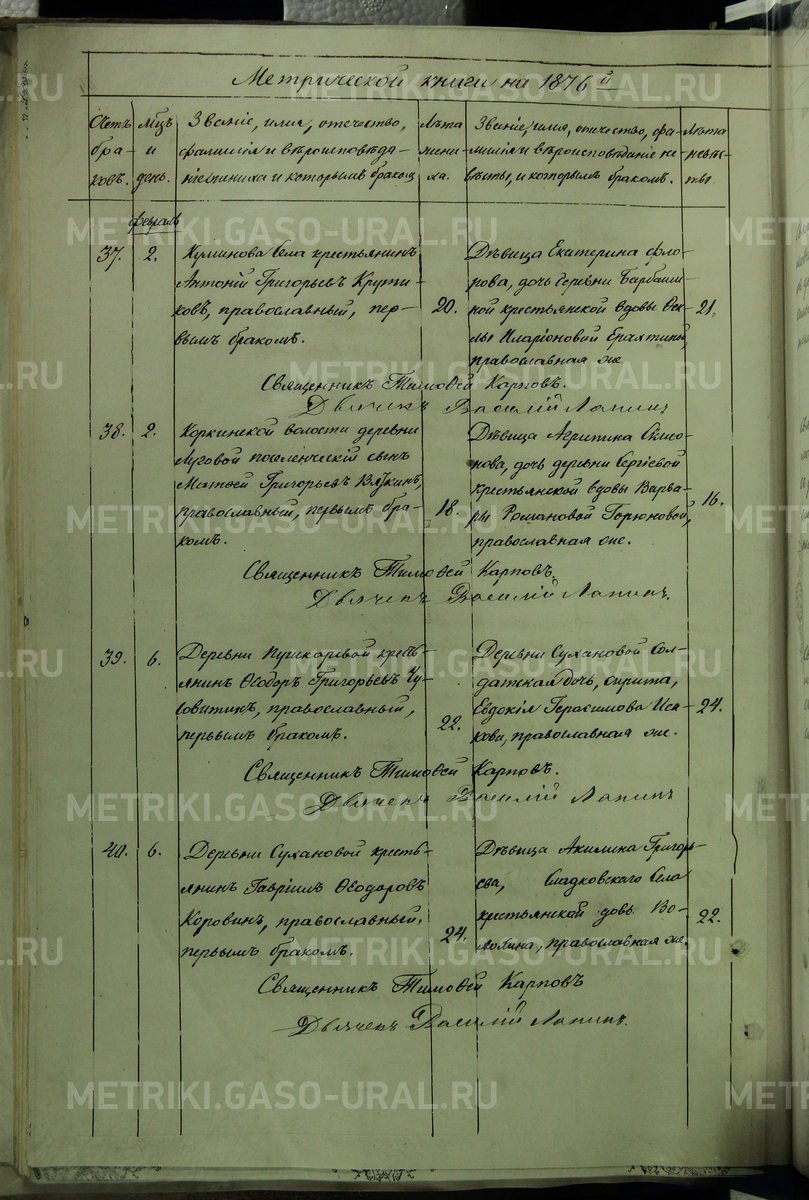 Метрической книги на 1876й
Счетъ бра- ковъ.
Мцъ и день.
Званіе, имя, отчество,
фамилія и вѣроисповѣда-
ніе жениха и которымъ бракомъ
Лѣта жени- ха.
Званіе, имя, отчество, фа-
милія и вѣроисповѣданіе не-
вѣсты, и которымъ бракомъ.
Лѣта невѣс- ты
февраль
37. 2.
село крестьянинъ
Антоній Григорьевъ Крути-
ковъ, православный, пер-
вымъ бракомъ.
20.
Дѣвица Екатерина Фло-
рова, дочь деревни
ной крестьянской вдовы Ѳек-
лы Иларіоновой
православная же
21.
Священникъ Тимоѳей Карповъ.
Дьячекъ Василій Лапинъ
38. 2.
Коркинской волости деревни
Луговой поселенческій сынъ
Матѳей Григорьевъ Вяткинъ,
православный, первымъ бра-
комъ.
18.
Дѣвица Агрипина
нова, дочь деревни Сергіевой
крестьянской вдовы Варва-
ры Романовой Горюновой,
православная же.
16.
Священникъ Тимоѳей Карповъ.
Дьячекъ Василій Лапинъ.
39. 6.
Деревни Пушкаревой кресть-
янинъ Ѳеодоръ Григорьевъ Чу-
совитинъ, православный,
первымъ бракомъ.
22.
Деревни Сухановой сол-
датская дочь, сирота,
Евдокія Герасимова Иса-
кова, православная же.
24.
Священникъ Тимоѳей Карповъ.
Дьячекъ Василій Лапинъ
40. 6.
Деревни Сухановой кресть-
янинъ Гавріилъ Ѳеодоровъ
Коровинъ, православный,
первымъ бракомъ.
24.
Дѣвица Акилина Григорь-
ева, Сладковскаго села
крестьянской
православная же.
22.
Священникъ Тимоѳей Карповъ
Дьячекъ Василій Лапинъ.
METRIKI.GASO-URAL.RU